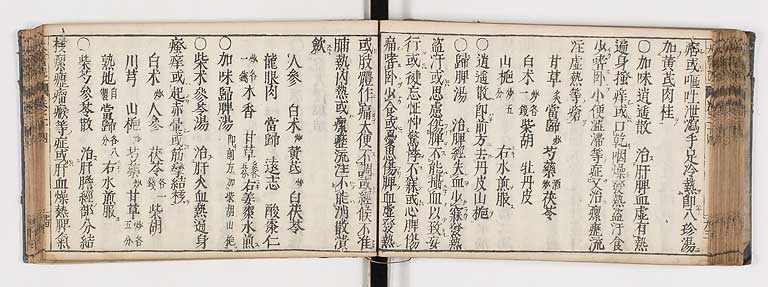 瘍或嘔吐瀉手足冷熱即八珍湯
加黄芪肉桂
○加味逍遥散 治肝脾血虚有熱
遍身搔痒或口乾咽燥發熱盗汗食
少嗜卧小便澁滞等症又治瘰癧流
注虚熱等瘡
甘草炙 當歸炒 芍藥酒炒 茯苓
白术炒各一錢 柴胡 牡丹皮
山梔炒各五分 右水煎服
○逍遥散即前方去丹皮山梔
○歸脾湯 治脾經失血少寐發熱
盗汗或思慮傷脾不能攝血以致妄
行或健忘怔忡驚悸不寐或心脾傷
痛嗜卧少食或憂思傷脾血虚發熱
或肢體作痛大便不調或經候不准
晡熱内熱或瘰癧流注不能消散潰
斂
人參 白术炒 黄芪炒 白茯苓
龍眼肉 當歸 遠志 酸棗仁炒各一錢
木香 甘草炙各五分 右姜棗水煎
○加味歸脾湯 即前方加柴胡山梔
○柴术參苓湯 治肝火血熱遍身
瘙痒或起赤暈或筋攣結核
白术炒 人參 茯苓各一錢 柴胡
川芎 山梔炒 芍藥炒 甘草炙五分
熟地自製 當歸各八分 右水煎服
○柴芍參苓散 治肝膽經部分結
核瘰癧瘤㾦等症或肝血燥熱脾氣